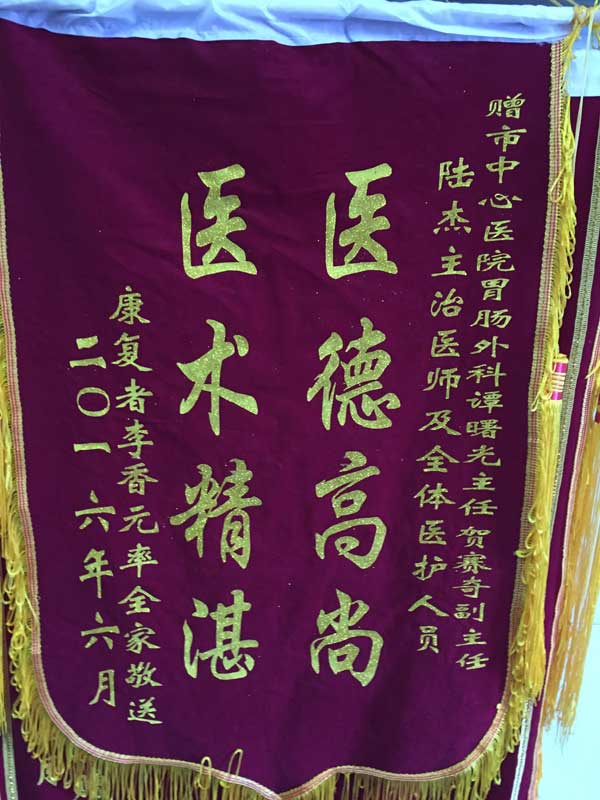 赠市中心医院胃肠外科谭曙光主任贺赛奇副主任
陆杰主治医师及全体医护人员
医德高尚
医术精湛
康复者李香元率全家敬送
二〇一六年六月